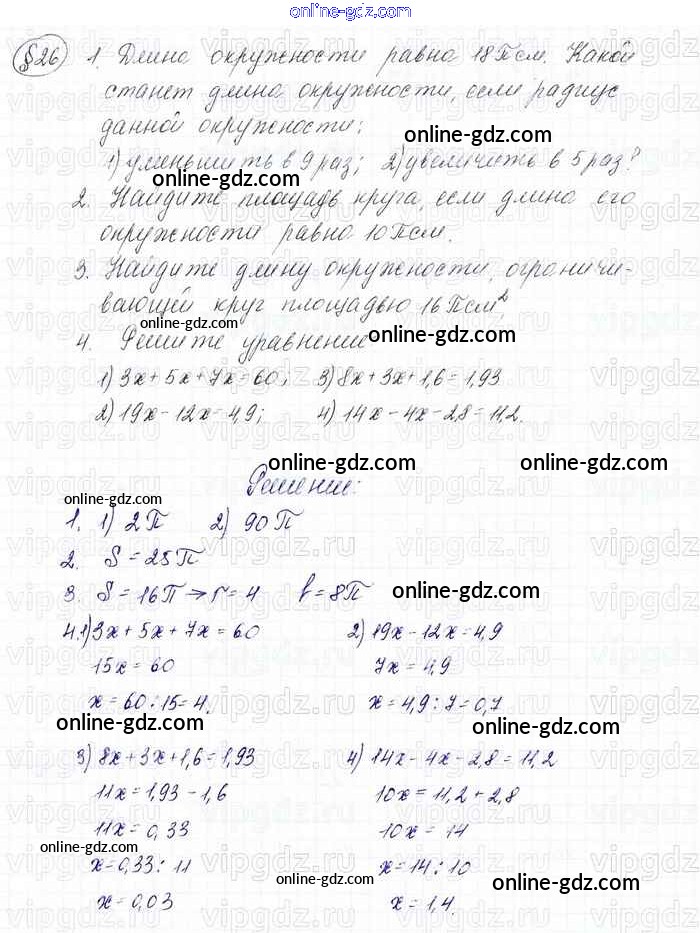 online-gdz.com
§26 1. Длина окружности равна 18π см. Какой
станет длина окружности, если радиус
данной окружности:
online-gdz.com
1) уменьшить в 9 раз; 2) увеличить в 5 раз?
online-gdz.com
2. Найдите площадь круга, если длина его
окружности равна 10π см.
3. Найдите длину окружности, ограничи-
вающей круг площадью 16π см².
online-gdz.com
online-gdz.com
4. Решите уравнение
1) 3x + 5x + 7x = 60; 3) 8x + 3x + 1,6 = 1,93
2) 19x - 12x = 4,9; 4) 14x - 4x - 2,8 = 11,2.
online-gdz.com online-gdz.com
Решение:
online-gdz.com
1. 1) 2π 2) 90π
2. S = 25π
3. S = 16π → r = 4 l = 8π
online-gdz.com
4.1) 3x + 5x + 7x = 60 2) 19x - 12x = 4,9
15x = 60 7x = 4,9
x = 60 : 15 = 4. x = 4,9 : 7 = 0,7
online-gdz.com online-gdz.com
3) 8x + 3x + 1,6 = 1,93 4) 14x - 4x - 2,8 = 11,2
11x = 1,93 - 1,6 10x = 11,2 + 2,8
11x = 0,33 10x = 14
online-gdz.com
x = 0,33 : 11 x = 14 : 10
online-gdz.com online-gdz.com
x = 0,03 x = 1,4.
vipgdz.ru